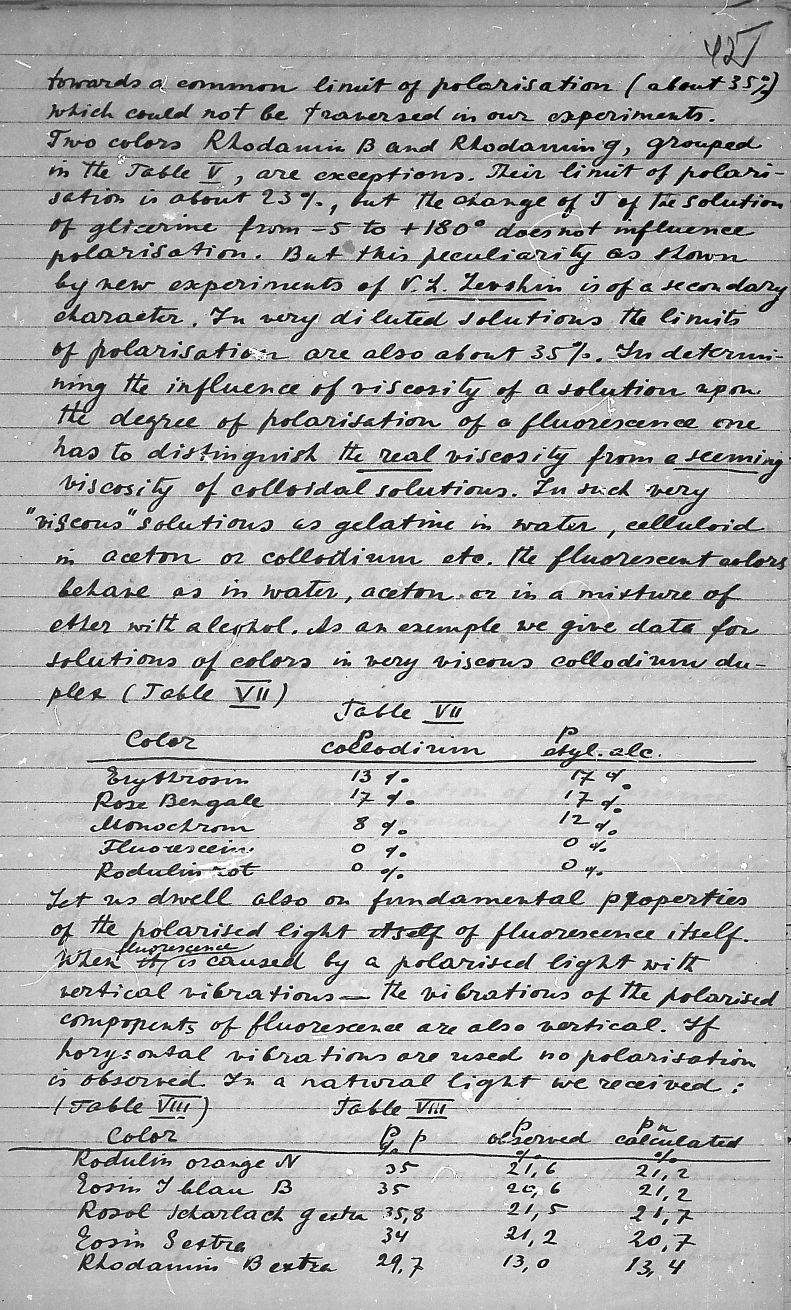 427
towards a common limit of polarisation (about 35%)
which could not be traversed in our experiments.
Two colors Rhodamin B and Rhodamin g, grouped
in the Table V, are exceptions. Their limit of polari-
sation is about 23%, but the change of T of the solution
of glicerine from -5 to +180° does not influence
polarisation. But this peculiarity as shown
by new experiments of V. L. Levshin is of a secondary
character. In very diluted solutions the limits
of polarisation are also about 35%. In determi-
ning the influence of viscosity of a solution upon
the degree of polarisation of a fluorescence one
has to distinguish the real viscosity from a seeming
viscosity of colloidal solutions. In such very
"viscous" solutions as gelatine in water, celluloid
in aceton or collodium etc. the fluorescent colors
behave as in water, aceton or in a mixture of
ether with alcohol. As an exemple we give data for
solutions of colors in very viscous collodium du-
plex (Table VII)
Table VII
Color P collodium P etyl. alc.
Erythrosin 13 % 17 %
Rose Bengale 17 % 17 %
Monochrom 8 % 12 %
Fluorescein 0 % 0 %
Rodulin rot 0 % 0 %
Let us dwell also on fundamental properties
of the polarised light itself of fluorescence itself.
When it fluorescence is caused by a polarised light with
vertical vibrations — the vibrations of the polarised
components of fluorescence are also vertical. If
horysontal vibrations are used no polarisation
is observed. In a natural light we received:
(Table VIII) Table VIII
Color P % P P observed % Pn calculated %
Rodulin orange N 35 21,6 21,2
Eosin I blau B 35 20,6 21,2
Rosol Scharlach g extra 35,8 21,5 21,7
Eosin S extra 34 21,2 20,7
Rhodamin B extra 29,7 13,0 13,4